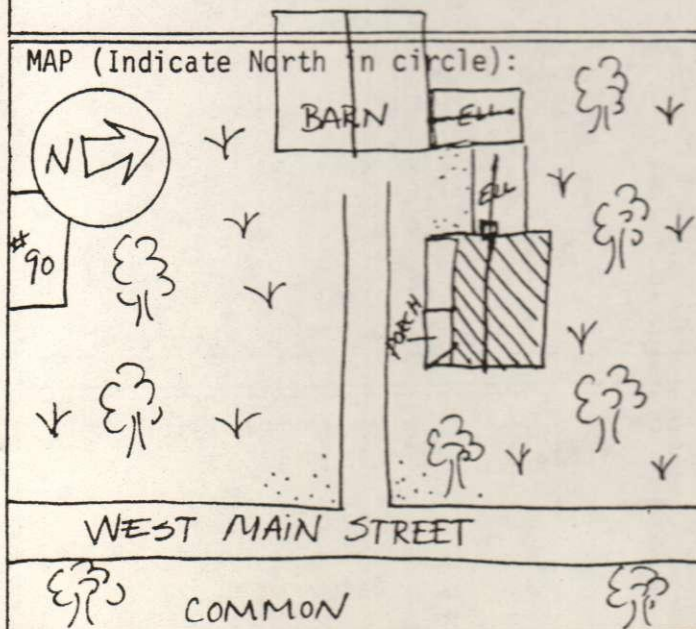 MAP (Indicate North in circle):
BARN
ELL
N
ELL
#90
PORCH
WEST MAIN STREET
COMMON